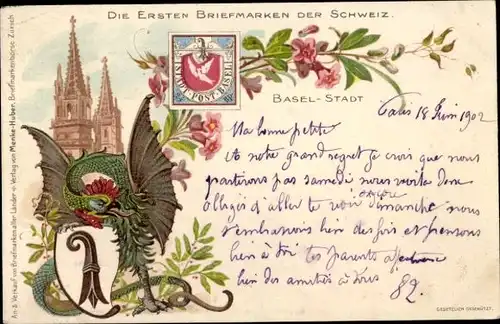 DIE ERSTEN BRIEFMARKEN DER SCHWEIZ.
STADT-POST-BASEL
BASEL-STADT
An- & Verkauf von Briefmarken aller Länder. Verlag von Menke-Huber, Briefmarkenbörse Zürich
Paris 18 Juin 1902
Ma bonne petite
A notre grand regret je crois que nous
partirons pas samedi nous voilà donc
obligés d'aller te voir dimanche nous
t'embrassons bien des fois et pensons
bien à toi tes parents
bien des amitiés à tous
GESETZLICH GESCHÜTZT.